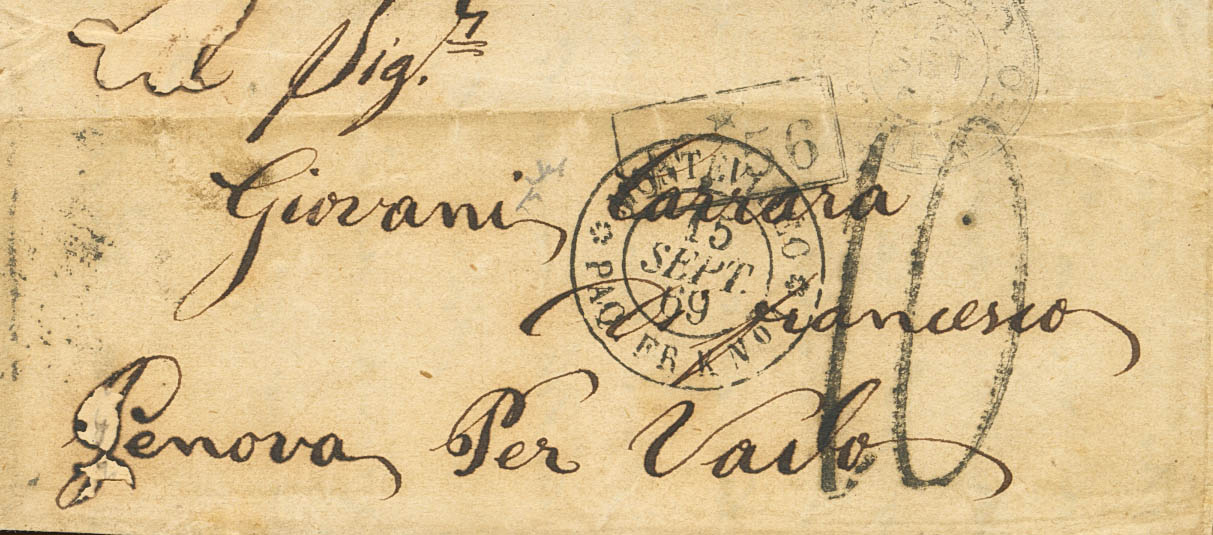 Sig.r
Giovani Carrara
di Francesco
Genova Per Vado
MONTEVIDEO
15
SEPT.
69
PAQ. FR. K No
56
10